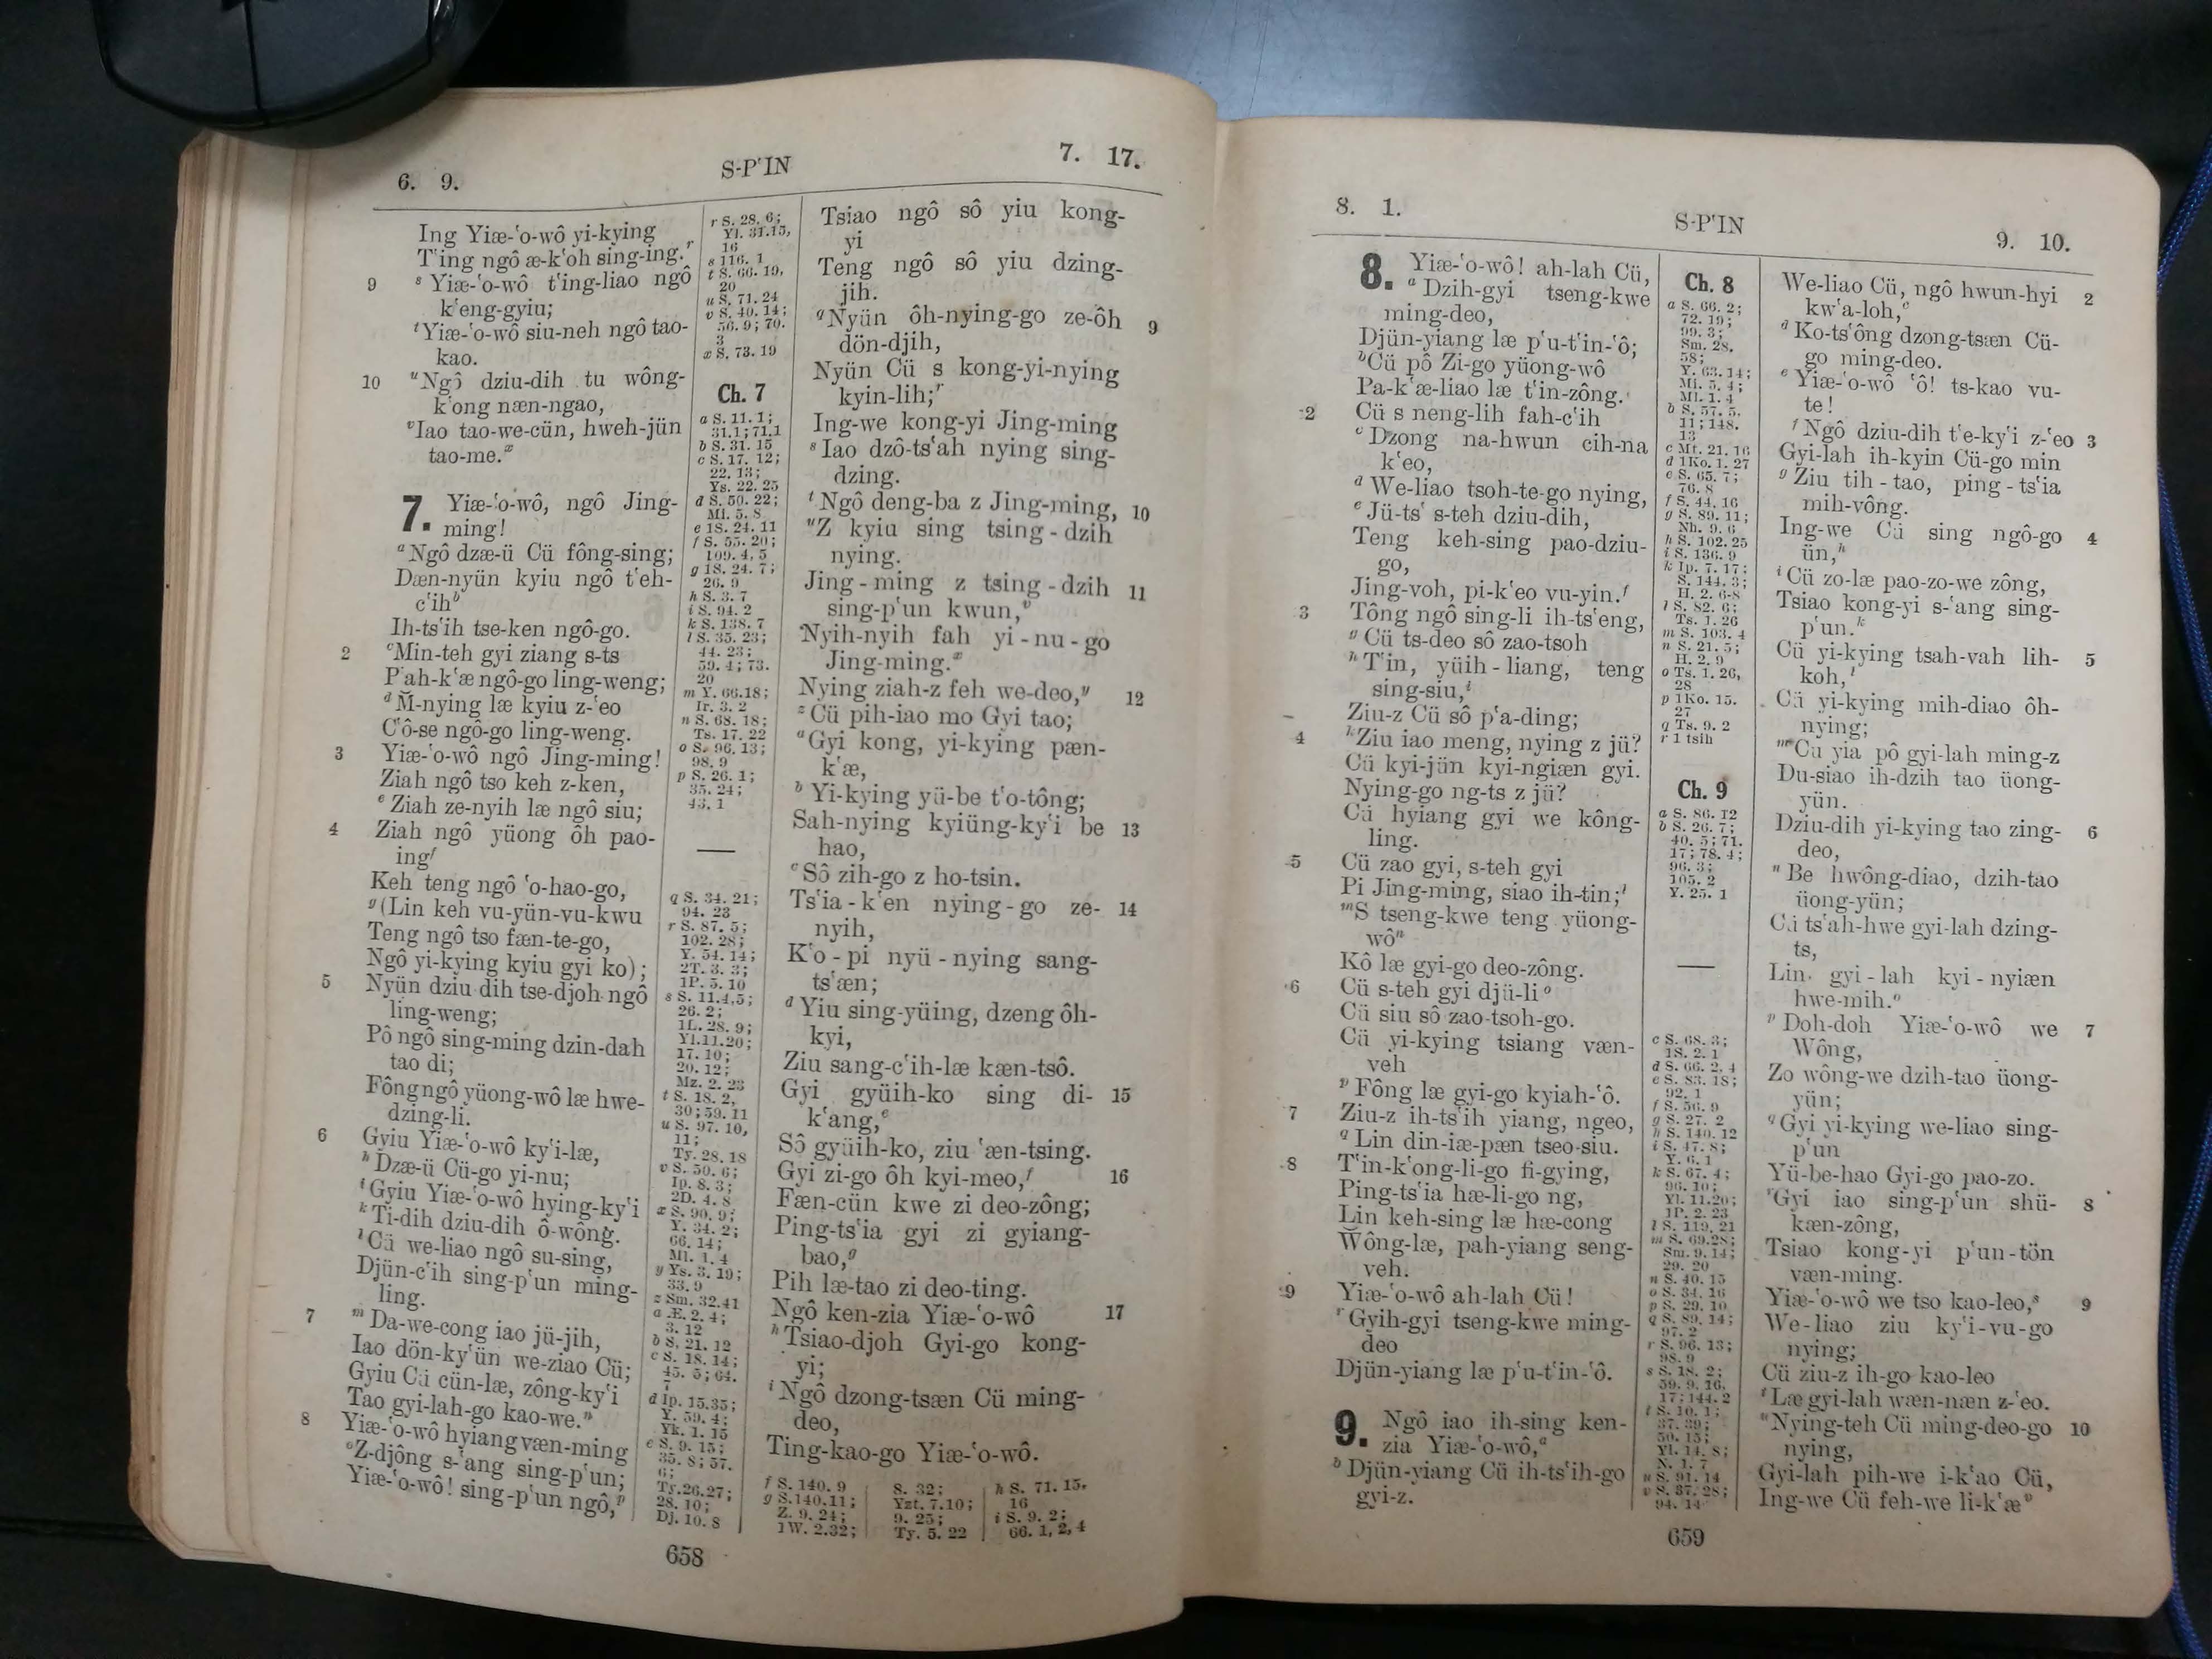 6. 9.
S-P‘IN
7. 17.
Ing Yiæ-‘o-wô yi-kying
T‘ing ngô æ-k‘oh sing-ing.r
9 s Yiæ-‘o-wô t‘ing-liao ngô
k‘eng-gyiu;
tYiæ-‘o-wô siu-neh ngô tao-
kao.
10 uNgô dziu-dih tu wông-
k‘ong næn-ngao,
vIao tao-we-cün, hweh-jün
tao-me.x
7. Yiæ-‘o-wô, ngô Jing-
ming!
aNgô dzæ-ü Cü fông-sing;
Dæn-nyün kyiu ngô t‘eh-
c‘ihb
Ih-ts‘ih tse-ken ngô-go.
2 cMin-teh gyi ziang s-ts
P‘ah-k‘æ ngô-go ling-weng;
dM̆-nying læ kyiu z-‘eo
C‘ô-se ngô-go ling-weng.
3 Yiæ-‘o-wô ngô Jing-ming!
Ziah ngô tso keh z-ken,
e Ziah ze-nyih læ ngô siu;
4 Ziah ngô yüong ôh pao-
ingf
Keh teng ngô ‘o-hao-go,
g(Lin keh vu-yün-vu-kwu
Teng ngô tso fæn-te-go,
Ngô yi-kying kyiu gyi ko);
5 Nyün dziu-dih tse-djoh ngô
ling-weng;
Pô ngô sing-ming dzin-dah
tao di;
Fông ngô yüong-wô læ hwe-
dzing-li.
6 Gyiu Yiæ-‘o-wô ky‘i-læ,
h Dzæ-ü Cü-go yi-nu;
iGyiu Yiæ-‘o-wô hying-ky‘i
k Ti-dih dziu-dih ô-wông.
lCü we-liao ngô su-sing,
Djün-c‘ih sing-p‘un ming-
ling.
7 m Da-we-cong iao jü-jih,
Iao dön-ky‘ün we-ziao Cü;
Gyiu Cü cün-læ, zông-ky‘i
Tao gyi-lah-go kao-we.n
8 Yiæ-‘o-wô hyiang væn-ming
oZ-djông s-‘ang sing-p‘un;
Yiæ-‘o-wô! sing-p‘un ngô,p
r S. 28. 6;
Yl. 31.15,
16
s 116. 1
t S. 66. 19,
20
u S. 71. 24
v S. 40. 14;
56. 9; 70.
3
x S. 73. 19
Ch. 7
a S. 11. 1;
31.1; 71.1
b S. 31. 15
c S. 17. 12;
22. 13;
Ys. 22. 25
d S. 50. 22;
Mi. 5. 8
e 1S. 24. 11
f S. 55. 20;
109. 4, 5
g 1S. 24. 7;
26. 9
h S. 3. 7
i S. 94. 2
k S. 138. 7
l S. 35. 23;
44. 23;
59. 4; 73.
20
m Y. 66.18;
Ir. 3. 2
n S. 68. 18;
Ts. 17. 22
o S. 96. 13;
98. 9
p S. 26. 1;
35. 24;
43. 1
q S. 34. 21;
94. 23
r S. 87. 5;
102. 28;
Y. 54. 14;
2T. 3. 3;
1P. 5. 10
s S. 11.4,5;
26. 2;
1L. 28. 9;
Yl.11.20;
17. 10;
20. 12;
Mz. 2. 23
t S. 18. 2,
30; 59. 11
u S. 97. 10,
11;
Ty. 28. 18
v S. 50. 6;
Ip. 8. 3;
2D. 4. 8
x S. 90. 9;
Y. 34. 2;
66. 14;
Ml. 1. 4
y Ys. 3. 19;
33. 9
z Sm. 32.41
a Æ. 2. 4;
3. 12
b S. 21. 12
c S. 18. 14;
45. 5; 64.
7
d Ip. 15.35;
Y. 59. 4;
Yk. 1. 15
e S. 9. 15;
35. 8; 57.
6;
Ty.26.27;
28. 10;
Dj. 10. 8
Tsiao ngô sô yiu kong-
yi
Teng ngô sô yiu dzing-
jih.
qNyün ôh-nying-go ze-ôh 9
dön-djih,
Nyün Cü s kong-yi-nying
kyin-lih;r
Ing-we kong-yi Jing-ming
s Iao dzô-ts‘ah nying sing-
dzing.
t Ngô deng-ba z Jing-ming, 10
uZ kyiu sing tsing-dzih
nying.
Jing-ming z tsing-dzih 11
sing-p‘un kwun,v
Nyih-nyih fah yi-nu-go
Jing-ming.x
Nying ziah-z feh we-deo,y 12
z Cü pih-iao mo Gyi tao;
aGyi kong, yi-kying pæn-
k‘æ,
b Yi-kying yü-be t‘o-tông;
Sah-nying kyiüng-ky‘i be 13
hao,
c Sô zih-go z ho-tsin.
Ts‘ia-k‘en nying-go ze- 14
nyih,
K‘o-pi nyü-nying sang-
ts‘æn;
d Yiu sing-yüing, dzeng ôh-
kyi,
Ziu sang-c‘ih-læ kæn-tsô.
Gyi gyüih-ko sing di- 15
k‘ang,e
Sô gyüih-ko, ziu ‘æn-tsing.
Gyi zi-go ôh kyi-meo,f 16
Fæn-cün kwe zi deo-zông;
Ping-ts‘ia gyi zi gyiang-
bao,g
Pih læ-tao zi deo-ting.
Ngô ken-zia Yiæ-‘o-wô 17
hTsiao-djoh Gyi-go kong-
yi;
i Ngô dzong-tsæn Cü ming-
deo,
Ting-kao-go Yiæ-‘o-wô.
f S. 140. 9
g S.140.11;
Z. 9. 24;
1W. 2.32;
S. 32;
Yzt. 7.10;
9. 25;
Ty. 5. 22
h S. 71. 15,
16
i S. 9. 2;
66. 1, 2, 4
658
8. 1.
S-P‘IN
9. 10.
8. Yiæ-‘o-wô! ah-lah Cü,
a Dzih-gyi tseng-kwe
ming-deo,
Djün-yiang læ p‘u-t‘in-‘ô;
bCü pô Zi-go yüong-wô
Pa-k‘æ-liao læ t‘in-zông.
2 Cü s neng-lih fah-c‘ih
c Dzong na-hwun cih-na
k‘eo,
d We-liao tsoh-te-go nying,
e Jü-ts‘ s-teh dziu-dih,
Teng keh-sing pao-dziu-
go,
Jing-voh, pi-k‘eo vu-yin.f
3 Tông ngô sing-li ih-ts‘eng,
g Cü ts-deo sô zao-tsoh
h T‘in, yüih-liang, teng
sing-siu,i
Ziu-z Cü sô p‘a-ding;
4 kZiu iao meng, nying z jü?
Cü kyi-jün kyi-ngiæn gyi.
Nying-go ng-ts z jü?
Cü hyiang gyi we kông-
ling.
5 Cü zao gyi, s-teh gyi
Pi Jing-ming, siao ih-tin;l
mS tseng-kwe teng yüong-
wôn
Kô læ gyi-go deo-zông.
6 Cü s-teh gyi djü-li o
Cü siu sô zao-tsoh-go.
Cü yi-kying tsiang væn-
veh
p Fông læ gyi-go kyiah-‘ô.
7 Ziu-z ih-ts‘ih yiang, ngeo,
q Lin din-iæ-pæn tseo-siu.
8 T‘in-k‘ong-li-go fi-gying,
Ping-ts‘ia hæ-li-go ng,
Lin keh-sing læ hæ-cong
Wông-læ, pah-yiang seng-
veh.
9 Yiæ-‘o-wô ah-lah Cü!
r Gyih-gyi tseng-kwe ming-
deo
Djün-yiang læ p‘u-t‘in-‘ô.
9. Ngô iao ih-sing ken-
zia Yiæ-‘o-wô,a
b Djün-yiang Cü ih-ts‘ih-go
gyi-z.
Ch. 8
a S. 66. 2;
72. 19;
99. 3;
Sm. 28.
58;
Y. 63. 14;
Mi. 5. 4;
Ml. 1. 4
b S. 57. 5,
11; 148.
13
c Mt. 21. 16
d 1Ko. 1. 27
e S. 65. 7;
76. 8
f S. 44. 16
g S. 89. 11;
Nh. 9. 6
h S. 102. 25
i S. 136. 9
k Ip. 7. 17;
S. 144. 3;
H. 2. 6-8
l S. 82. 6;
Ts. 1. 26
m S. 103. 4
n S. 21. 5;
H. 2. 9
o Ts. 1. 26,
28
p 1Ko. 15.
27
q Ts. 9. 2
r 1 tsih
Ch. 9
a S. 86. 12
b S. 26. 7;
40. 5; 71.
17; 78. 4;
96. 3;
105. 2
Y. 25. 1
c S. 68. 3;
1S. 2. 1
d S. 66. 2, 4
e S. 83. 18;
92. 1
f S. 56. 9
g S. 27. 2
h S. 140. 12
i S. 47. 8;
Y. 6. 1
k S. 67. 4;
96. 10;
Yl. 11.20;
1P. 2. 23
l S. 119. 21
m S. 69.28;
Sm. 9. 14;
29. 20
n S. 40. 15
o S. 34. 16
p S. 29. 10
q S. 89. 14;
97. 2
r S. 96. 13;
98. 9
s S. 18. 2;
59. 9, 16,
17; 144. 2
t S. 10. 1;
37. 39;
50. 15;
Yl. 14. 8;
N. 1. 7
u S. 91. 14
v S. 37. 28;
94. 14
We-liao Cü, ngô hwun-hyi 2
kw‘a-loh,c
d Ko-ts‘ông dzong-tsæn Cü-
go ming-deo.
e Yiæ-‘o-wô ‘ô! ts-kao vu-
te!
f Ngô dziu-dih t‘e-ky‘i z-‘eo 3
Gyi-lah ih-kyin Cü-go min
g Ziu tih-tao, ping-ts‘ia
mih-vông.
Ing-we Cü sing ngô-go 4
ün,h
i Cü zo-læ pao-zo-we zông,
Tsiao kong-yi s-‘ang sing-
p‘un.k
Cü yi-kying tsah-vah lih- 5
koh,l
Cü yi-kying mih-diao ôh-
nying;
mCü yia pô gyi-lah ming-z
Du-siao ih-dzih tao üong-
yün.
Dziu-dih yi-kying tao zing- 6
deo,
n Be hwông-diao, dzih-tao
üong-yün;
Cü ts‘ah-hwe gyi-lah dzing-
ts,
Lin gyi-lah kyi-nyiæn
hwe-mih.o
p Doh-doh Yiæ-‘o-wô we 7
Wông,
Zo wông-we dzih-tao üong-
yün;
q Gyi yi-kying we-liao sing-
p‘un
Yü-be-hao Gyi-go pao-zo.
rGyi iao sing-p‘un shü- 8
kæn-zông,
Tsiao kong-yi p‘un-tön
væn-ming.
Yiæ-‘o-wô we tso kao-leo,s 9
We-liao ziu ky‘i-vu-go
nying;
Cü ziu-z ih-go kao-leo
tLæ gyi-lah wæn-næn z-‘eo.
uNying-teh Cü ming-deo-go 10
nying,
Gyi-lah pih-we i-k‘ao Cü,
Ing-we Cü feh-we li-k‘æv
659